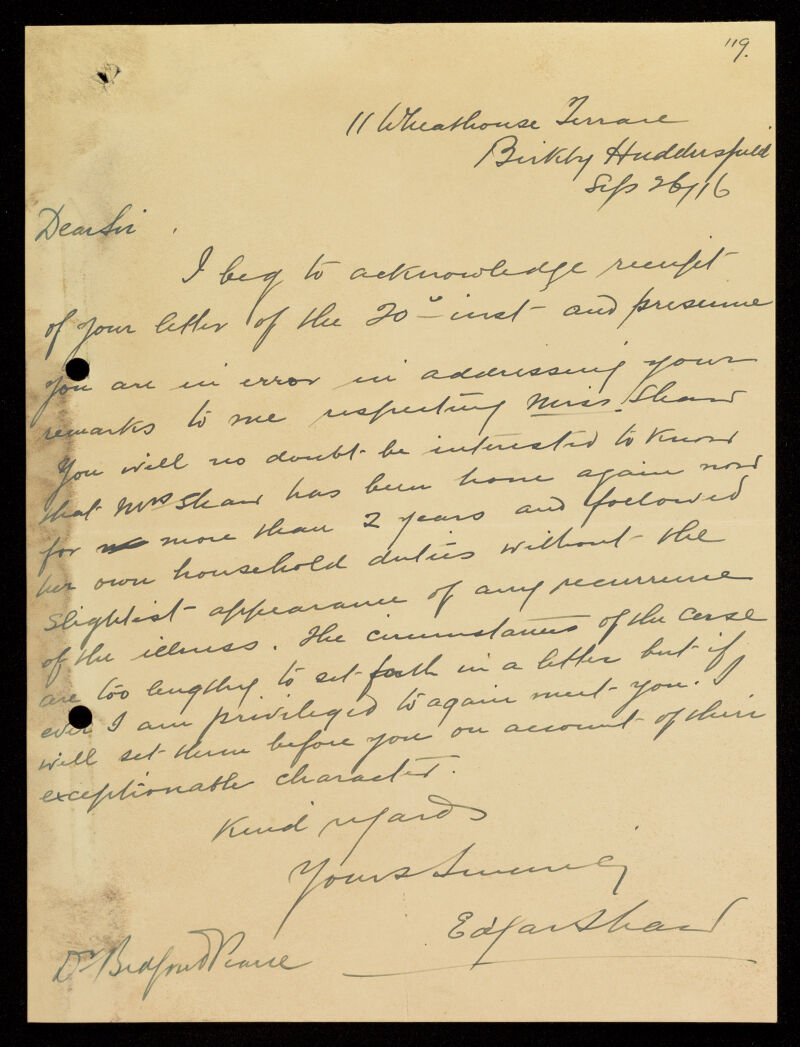 119.
11 Wheathouse Terrace
Birkby Huddersfield
Sep 26/16
Dear Sir,
I beg to acknowledge receipt
of your letter of the 20º inst- and presume
you are in error in addressing your
remarks to me respecting Miss. Shaw
You will no doubt be interested to know
that Mrs Shaw has been home again now
for more than 2 years and followed
her own household duties without the
slightest appearance of any recurrence
of the illness. The circumstances of the case
are too lengthy to set forth in a letter but if
ever I am privileged to again meet you. I
will set them before you on account of their
exceptionable character.
Kind regards
Yours Sincerely
Edgar Shaw
Dr Bedford Pierce